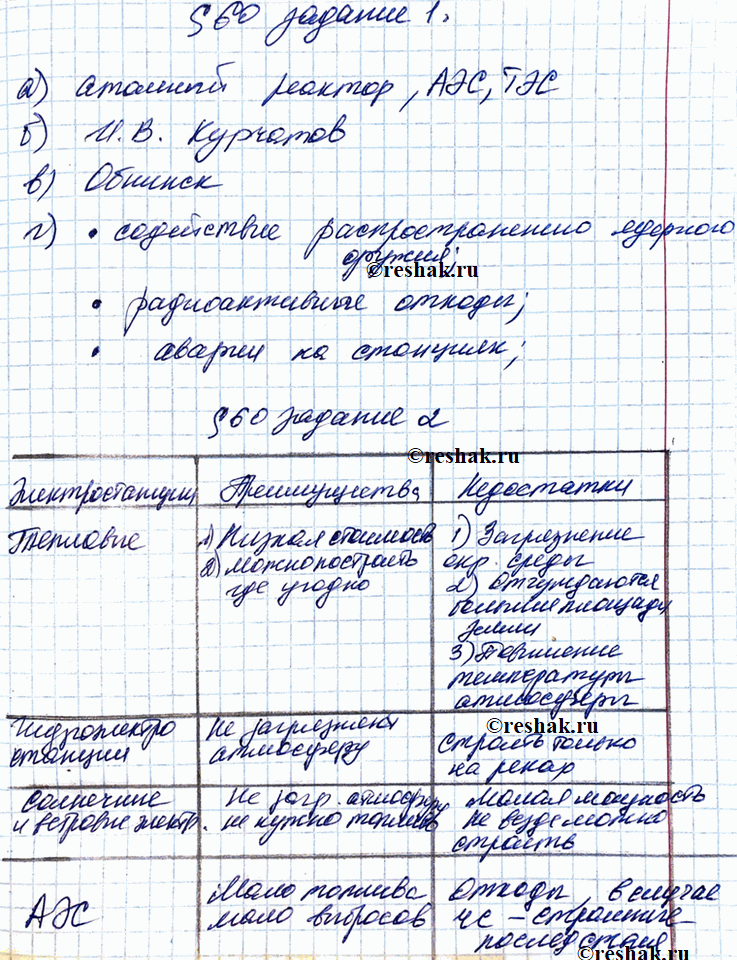 §60 задание 1.
а) атомный реактор, АЭС, ТЭС
б) И.В. Курчатов
в) Обнинск
г) • содействие распространению ядерного
оружия;
©reshak.ru
• радиоактивные отходы;
• аварии на станциях;
§60 задание 2
©reshak.ru
Электростанции Преимущества Недостатки
Тепловые
1) Низкая стоимость
2) можно построить
где угодно
1) Загрязнение
окр. среды
2) Отчуждаются
большие площади
земли
3) Повышение
температуры
атмосферы
Гидроэлектро
станции
Не загрязняют
атмосферу
©reshak.ru
строить только
на реках
Солнечные
и ветровые электр.
Не загр. атмосферу
не нужно топливо
Малая мощность
Не везде можно
строить
АЭС
Мало топлива
мало выбросов
Отходы, в случае
ЧС – страшные
последствия
©reshak.ru